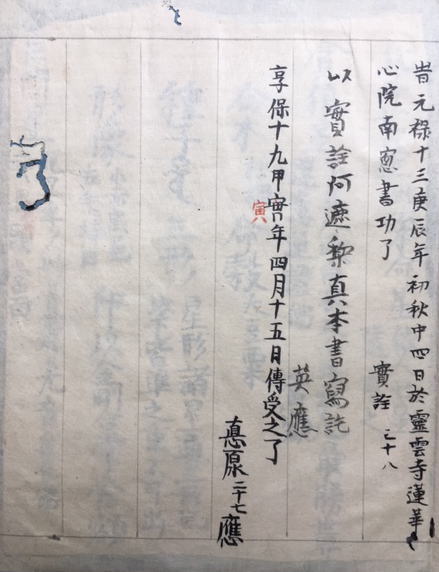 旹元禄十三庚辰年初秋中四日於靈雲寺蓮華
心院南窓書功了
實詮 二十八
以實詮阿遮梨真本書寫訖
英應
享保十九甲寅年四月十五日傳受之了
寅
應
二十七